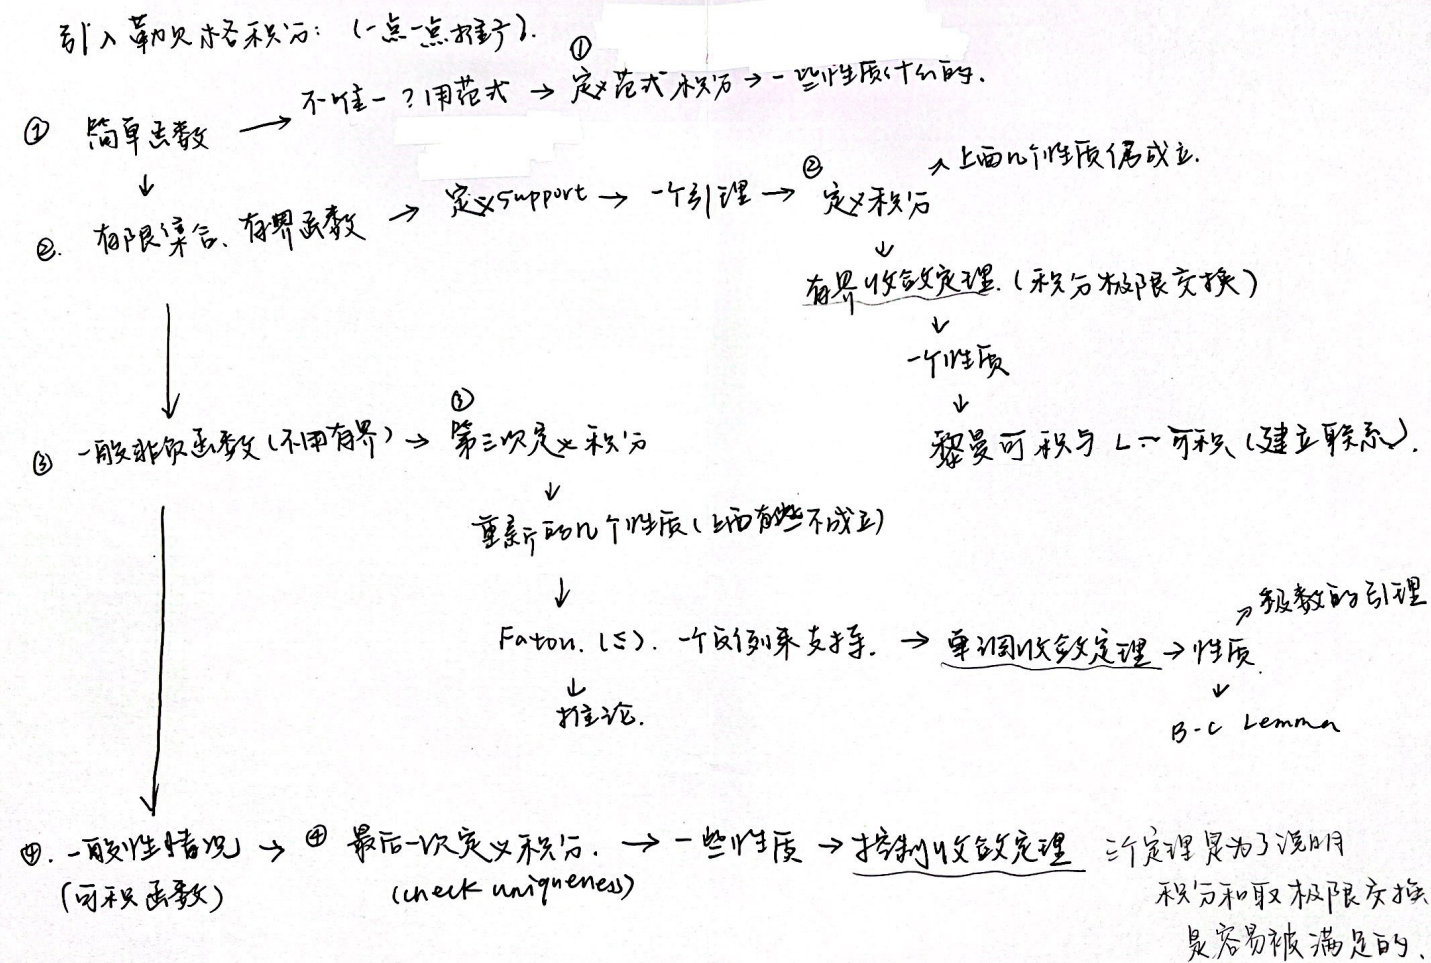 引入勒贝格积分：（一点一点推导）.
① 简单函数 → 不唯一？用范式 → ① 定义范式积分 → 一些性质什么的.
↓
②. 有限集合、有界函数 → 定义support → 一个引理 → ② 定义积分 ↗ 上面几个性质仍成立.
↓
有界收敛定理.（积分极限交换）
↓
一个性质
↓
黎曼可积与 L~可积（建立联系）.
↓
③ 一般非负函数（不用有界）→ ③ 第三次定义积分
↓
重新的几个性质（上面有些不成立）
↓
Fatou. (≤). 一个反例来支持. → 单调收敛定理 → 性质. ↗ 级数的引理
↓
推论.
↓
B-C Lemma
↓
④. 一般性情况 → ④ 最后一次定义积分. → 一些性质 → 控制收敛定理
（可积函数）
(check uniqueness)
三个定理是为了说明
积分和取极限交换
是容易被满足的.